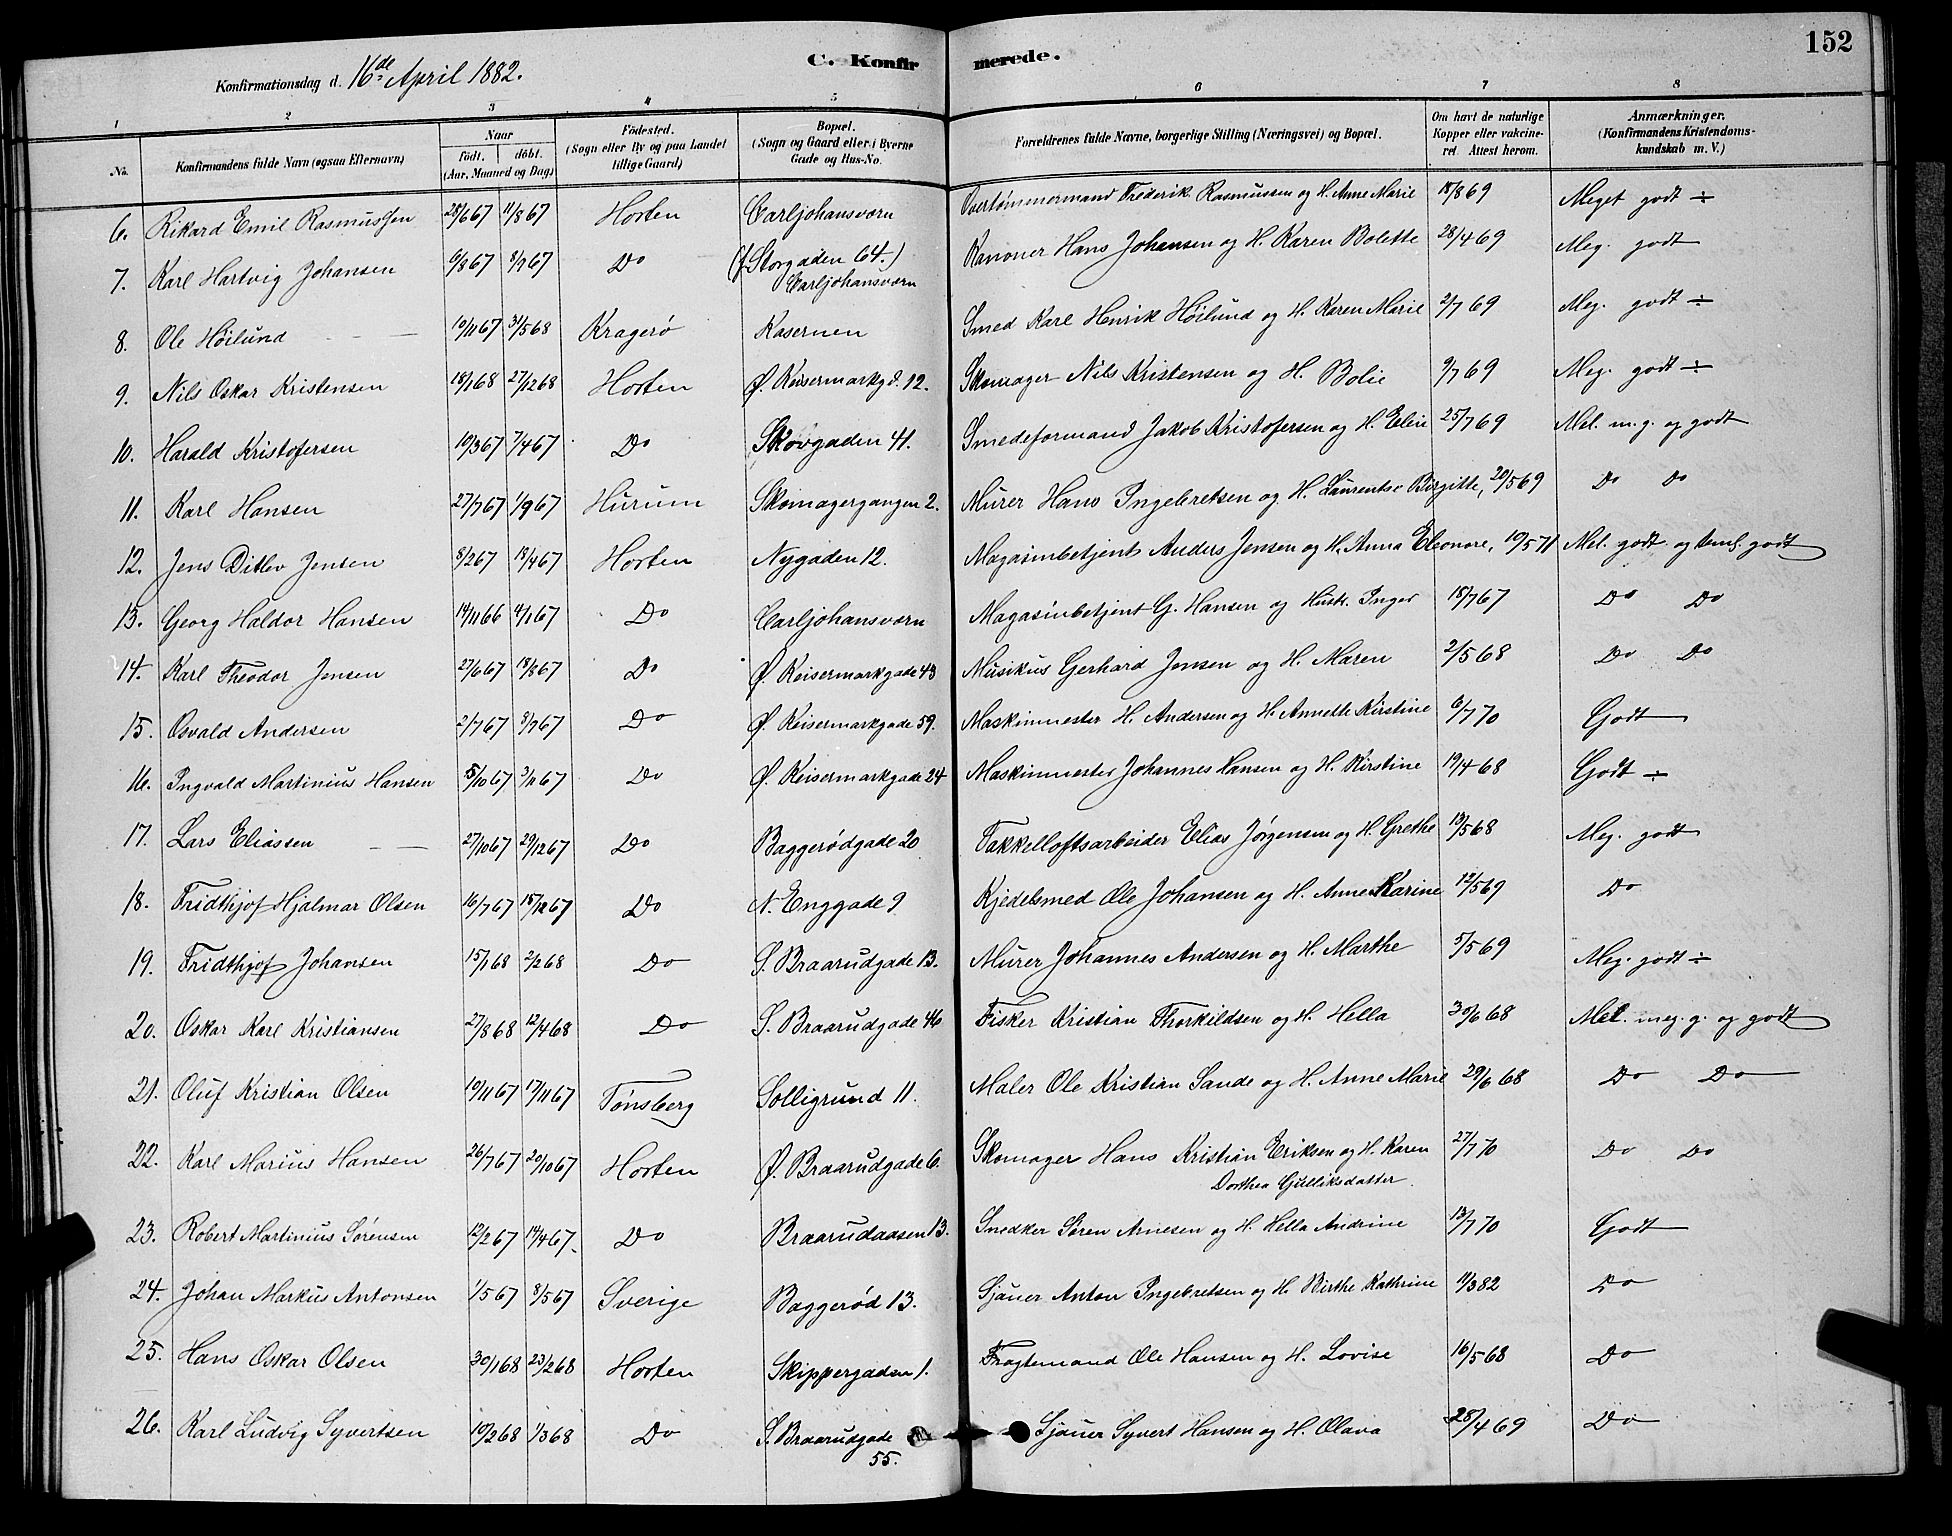 152
Konfirmationsdag d. 16de April 1882.
C. Konfirmerede.
1 2 3 4 5 6 7 8
No. Konfirmandens fulde Navn (ogsaa Efternavn) Naar født. døbt. (Aar, Maaned og Dag) Fødested. (Sogn eller By og paa Landet tillige Gaard) Bopæl. (Sogn og Gaard eller i Byerne Gade og Hus-No. Forældrenes fulde Navne, borgerlige Stilling (Næringsvei) og Bopæl. Om havt de naturlige Kopper eller vakcineret. Attest herom. Anmærkninger. (Konfirmandens Kristendomskundskab m. V.)
6. Rikard Emil Rasmussen 28/6 67 11/8 67 Horten Carljohansværn Overtømmermand Frederik Rasmussen og H. Anne Marie 18/8 69 Meget godt ÷
7. Karl Hartvig Johansen 6/8 67 8/7 67 Do (f. Storgaden 64.) Carljohansværn Kanoner Hans Johansen og H. Karen Bolette 28/4 69 Meg. godt
8. Ole Höilund 10/11 67 31/5 68 Kragerø Kasernen Smed Karl Henrik Höilund og H. Karen Marie 2/7 69 Meg. godt ÷
9. Nils Oskar Kristensen 18/1 68 27/12 68 Horten Ø. Keisermarkgd. 12. Skomager Nils Kristensen og H. Bolie 9/7 69 Meg. godt ÷
10. Harald Kristofersen 10/3 67 7/4 67 Do Skovgaden 41. Smedeformand Jakob Kristofersen og H. Elin 25/7 69 Mel. m. g. og godt
11. Karl Hansen 27/7 67 1/9 67 Hurum Skomagergangen 2. Murer Hans Ingebretsen og H. Laurentse Birgitte, 20/5 69 Do Do
12. Jens Ditlev Jensen 8/2 67 18/4 67 Horten Nygaden 12. Magasinbetjent Anders Jensen og H. Anna Eleonore, 10/5 71 Mel. godt og teml. godt
13. Georg Haldor Hansen 14/11 66 4/1 67 Do Carljohansværn Magasinbetjent G. Hansen og Hustr. Inger 18/7 67 Do Do
14. Karl Theodor Jensen 27/6 67 18/8 67 Do Ø. Keisermarkgade 43 Musikus Gerhard Jensen og H. Maren 2/5 68 Do Do
15. Osvald Andersen 2/7 67 8/7 67 Do Ø. Keisermarkgade 59. Maskinmester H. Andersen og H. Annette Kirstine 6/7 70 Godt
16. Ingvald Martinius Hansen 15/10 67 3/11 67 Do Ø. Keisermarkgade 24 Maskinmester Johannes Hansen og H. Kirstine 19/4 68 Godt ÷
17. Lars Eliassen 27/10 67 29/12 67 Do Baggerødgade 20 Takkelloftsarbeider Elias Jørgensen og H. Grethe 13/5 68 Meg. godt
18. Fridthjof Hjalmar Olsen 16/7 67 15/12 67 Do N. Enggade 9. Kjedelsmed Ole Johansen og H. Anne Karine 12/5 69 Do
19. Fridthjof Johansen 15/1 68 2/2 68 Do S. Braarudgade 13. Murer Johannes Andersen og H. Marthe 5/5 69 Meg. godt ÷
20. Oskar Karl Kristiansen 27/8 68 12/4 68 Do S. Braarudgade 46 Fisker Kristian Thorkildsen og H. Hella 30/6 68 Mel. meg. g. og godt
21. Oluf Kristian Olsen 10/11 67 17/11 67 Tønsberg Solligrund 11. Maler Ole Kristian Sande og H. Anne Marie 29/6 68 Do Do
22. Karl Marius Hansen 26/7 67 20/10 67 Horten Ø. Braarudgade 6. Skomager Hans Kristian Eriksen og H. Karen Dorthea Gulliksdatter 27/7 70 Do Do
23. Robert Martinius Sørensen 12/2 67 14/4 67 Do Braarudaasen 13. Snedker Søren Arnesen og H. Hella Andrine 13/7 70 Godt
24. Johan Markus Antonsen 1/5 67 8/5 67 Sverige Baggerød 13. Sjauer Anton Ingebretsen og H. Birthe Kathrine 11/3 82 Do
25. Hans Oskar Olsen 30/1 68 23/2 68 Horten Skippergaden 1. Fragtemand Ole Hansen og H. Lovise 16/5 68 Do
26. Karl Ludvig Syvertsen 10/2 68 1/3 68 Do S. Braarudgade 55. Sjauer Syvert Hansen og H. Olava 28/4 69 Do